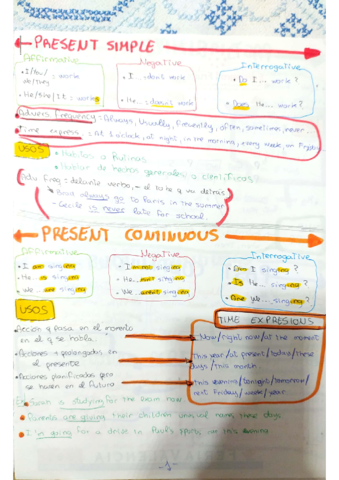 PRESENT SIMPLE
Affirmative
Negative
Interrogative
• I/You/
we/they : work
• He/She/It : works
• I ... don't work
• He... doesn't work
• Do I... work?
• Does He... work?
Adverbs Frequency: Always, Usually, Frequently, often, sometimes, never
Time express.: At 5 o'clock, at night, in the morning, every week, on Fridays
USOS
• Hábitos o Rutinas
• Hablar de hechos generales o científicos
Adv freq: delante verbo, - el to be q va detrás
Paris always go to Paris in the summer
- Cecile is never late for school
PRESENT CONTINUOUS
Affirmative
Negative
Interrogative
• I am singing
• He is singing
• We are singing
• I'm not singing
• He isn't singing
• We aren't singing
• Am I singing?
• Is He... singing?
• Are We... singing?
USOS
TIME EXPRESIONS
• Acción q pasa en el momento
en el q se habla
Now/right now/at the moment
• Acciones + prolongadas en
el presente
This year/at present/today/these
days/this month
• Acciones planificadas para
se hacen en el futuro
This evening/tonight/tomorrow/
next Friday/week/year
is studying for the exam now
are giving their children unusual names these days
• I'm going for a drink in Paul's this evening
-1-